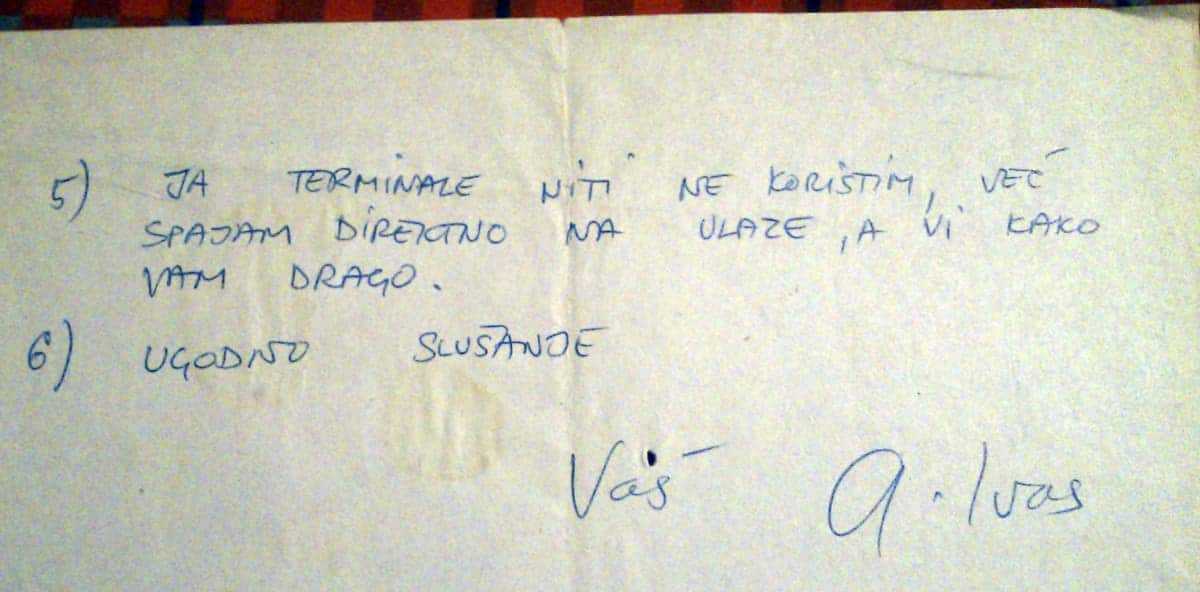 5) JA TERMINALE NITI NE KORISTIM, VEĆ
SPAJAM DIREKTNO NA ULAZE, A VI KAKO
VAM DRAGO.
6) UGODNO SLUŠANJE
Vaš A. Ivas